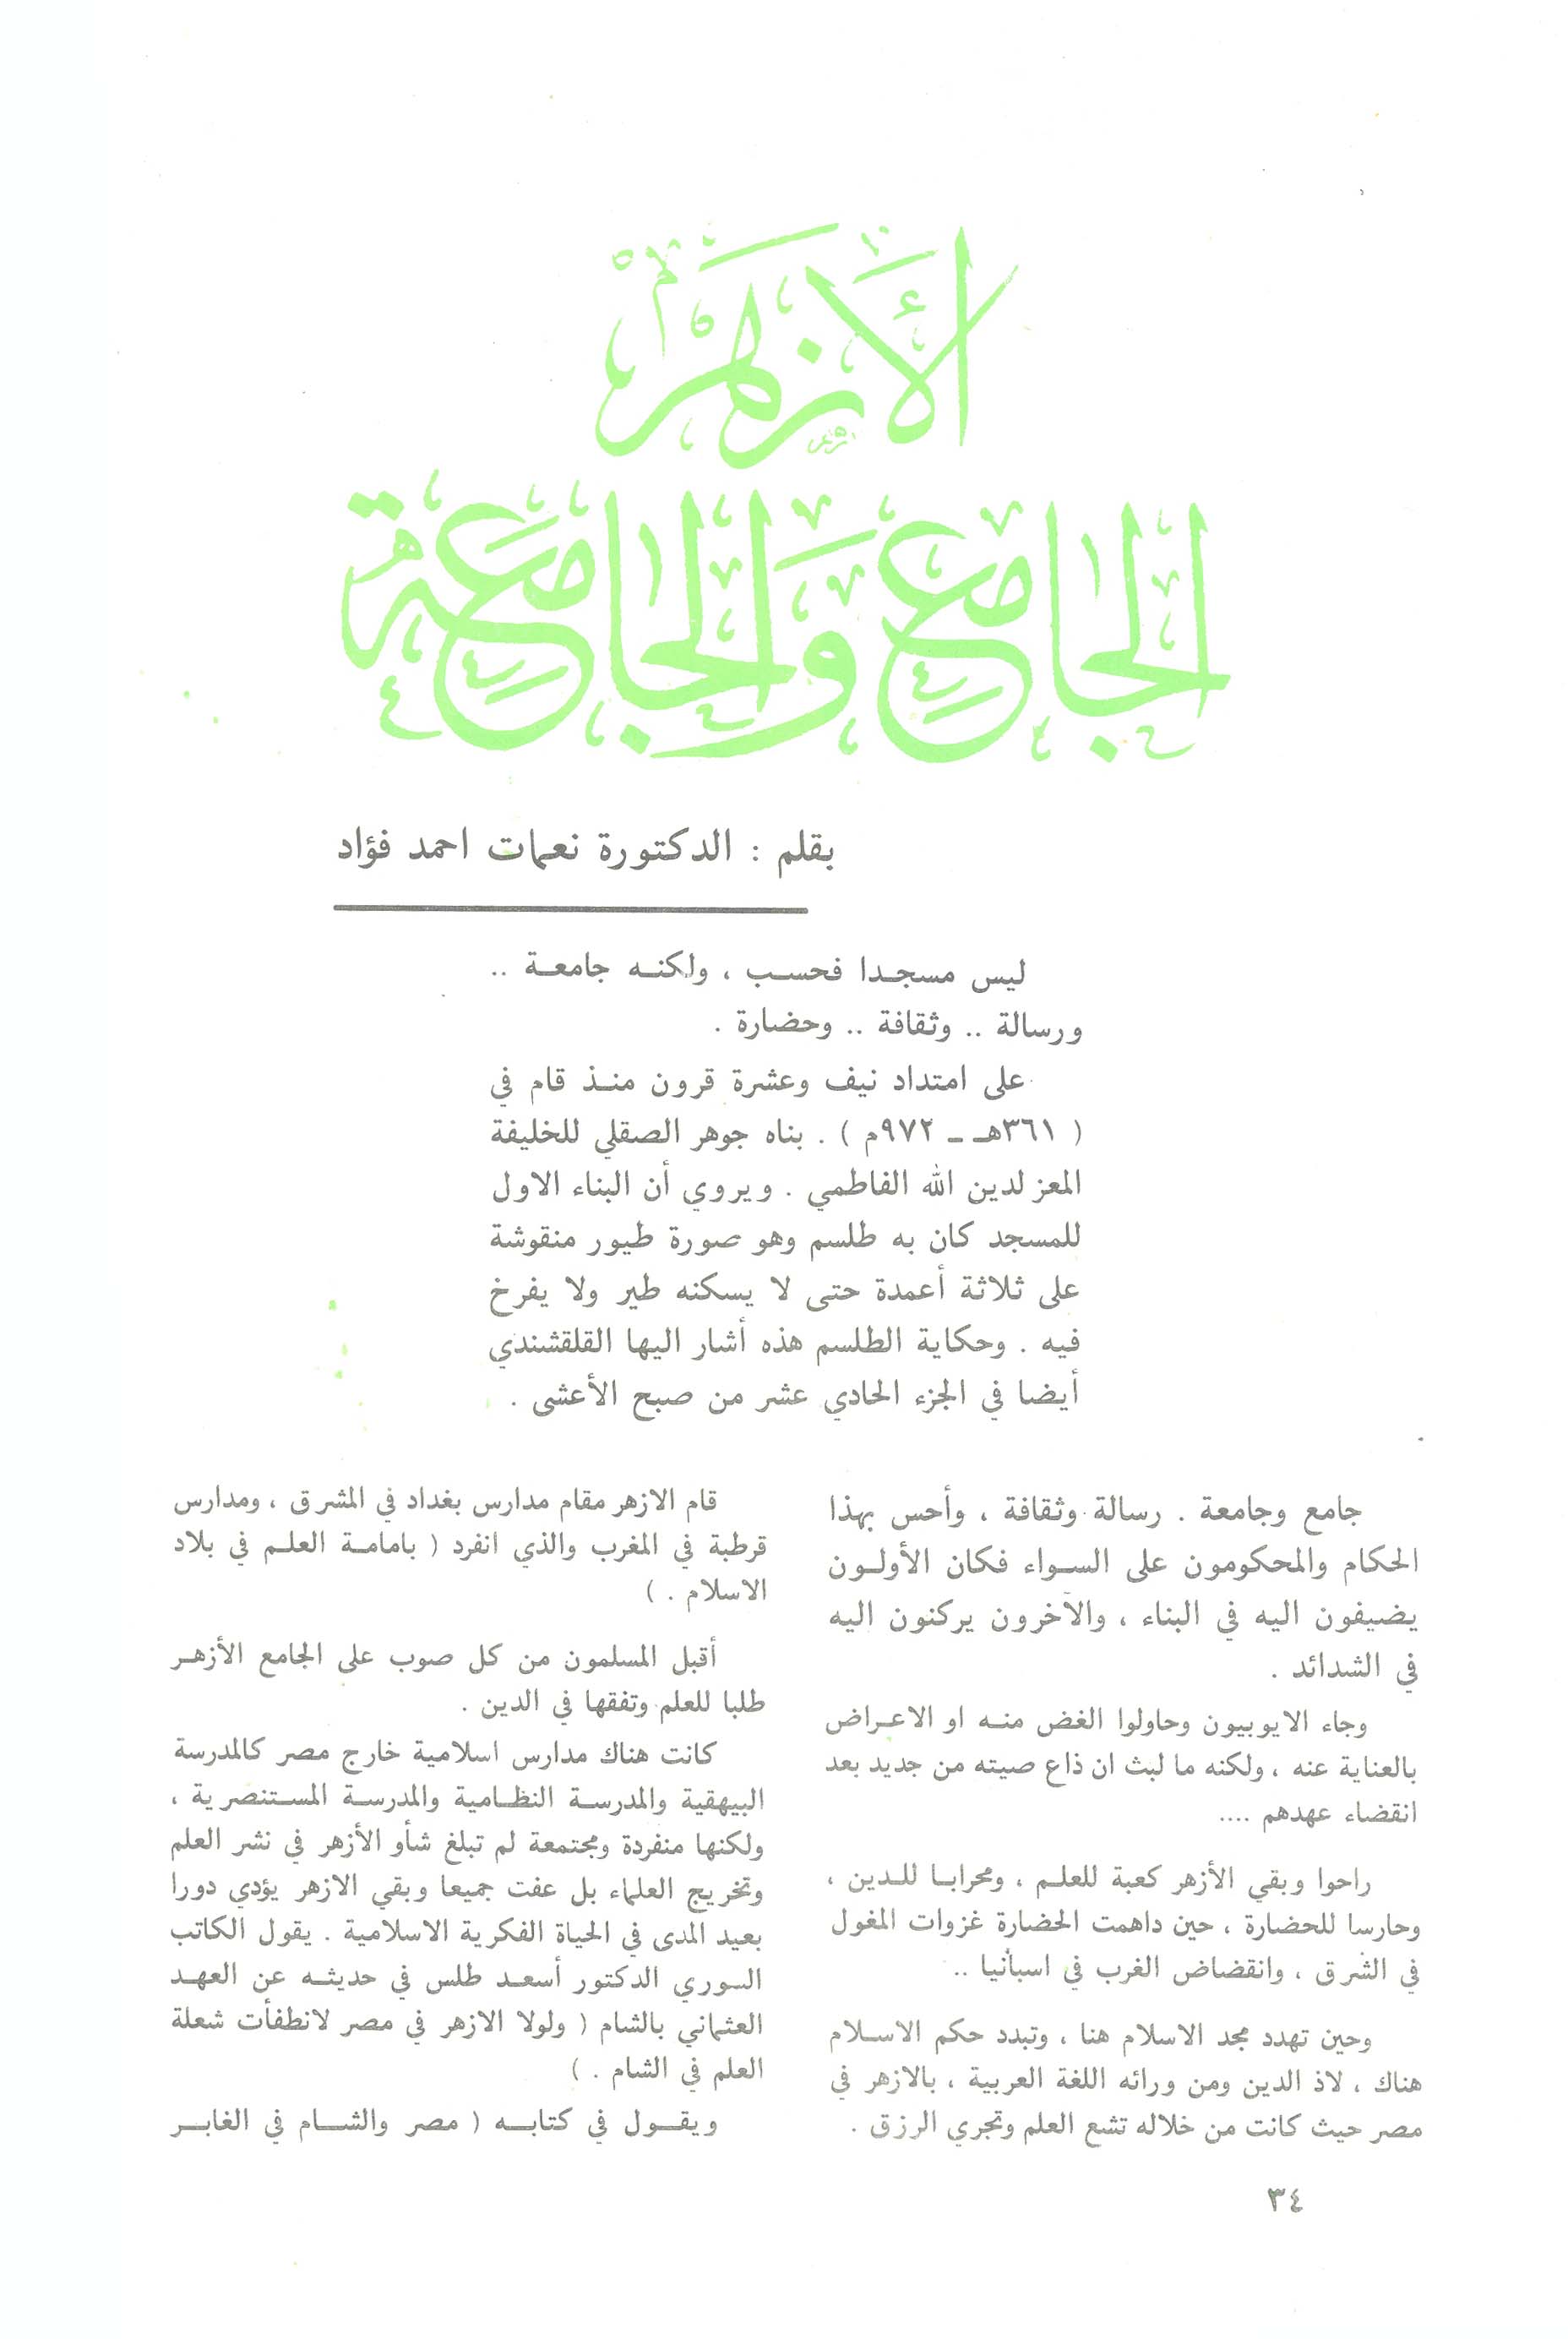 الأزهر
الجامع والجامعة
بقلم : الدكتورة نعمات احمد فؤاد
ليس مسجدا فحسب ، ولكنه جامعة ..
ورسالة .. وثقافة .. وحضارة .
على امتداد نيف وعشرة قرون منذ قام في
( ٣٦١هـ ــ ٩٧٢م ) . بناه جوهر الصقلي للخليفة
المعز لدين الله الفاطمي . ويروي أن البناء الاول
للمسجد كان به طلسم وهو صورة طيور منقوشة
على ثلاثة أعمدة حتى لا يسكنه طير ولا يفرخ
فيه . وحكاية الطلسم هذه أشار اليها القلقشندي
أيضا في الجزء الحادي عشر من صبح الأعشى .
جامع وجامعة . رسالة وثقافة ، وأحس بهذا
الحكام والمحكومون على السواء فكان الأولون
يضيفون اليه في البناء ، والآخرون يركنون اليه
في الشدائد .
وجاء الايوبيون وحاولوا الغض منه او الاعراض
بالعناية عنه ، ولكنه ما لبث ان ذاع صيته من جديد بعد
انقضاء عهدهم ....
راحوا وبقي الأزهر كعبة للعلم ، ومحرابا للدين ،
وحارسا للحضارة ، حين داهمت الحضارة غزوات المغول
في الشرق ، وانقضاض الغرب في اسبأنيا ..
وحين تهدد مجد الاسلام هنا ، وتبدد حكم الاسلام
هناك ، لاذ الدين ومن ورائه اللغة العربية ، بالازهر في
مصر حيث كانت من خلاله تشع العلم وتجري الرزق .
قام الازهر مقام مدارس بغداد في المشرق ، ومدارس
قرطبة في المغرب والذي انفرد ( بامامة العلم في بلاد
الاسلام . )
أقبل المسلمون من كل صوب على الجامع الأزهر
طلبا للعلم وتفقها في الدين .
كانت هناك مدارس اسلامية خارج مصر كالمدرسة
البيهقية والمدرسة النظامية والمدرسة المستنصرية ،
ولكنها منفردة ومجتمعة لم تبلغ شأو الأزهر في نشر العلم
وتخريج العلماء بل عفت جميعا وبقي الازهر يؤدي دورا
بعيد المدى في الحياة الفكرية الاسلامية . يقول الكاتب
السوري الدكتور أسعد طلس في حديثه عن العهد
العثماني بالشام ( ولولا الازهر في مصر لانطفأت شعلة
العلم في الشام . )
ويقول في كتابه ( مصر والشام في الغابر
٣٤